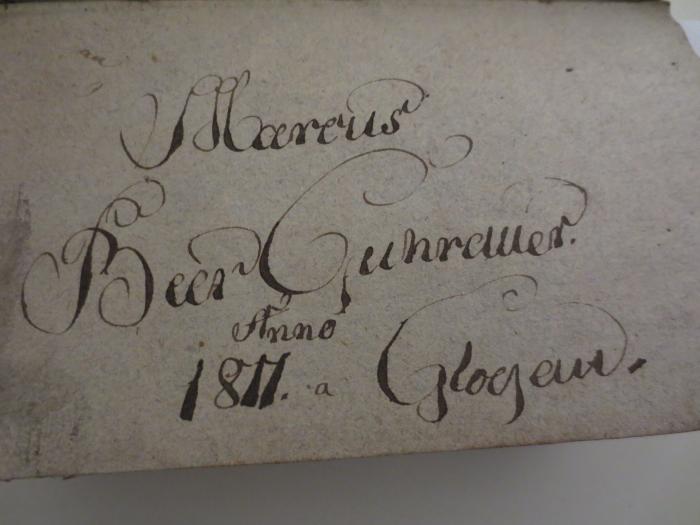 Marcus
Beer Guhrauer.
Anno
1811. a Glogau.